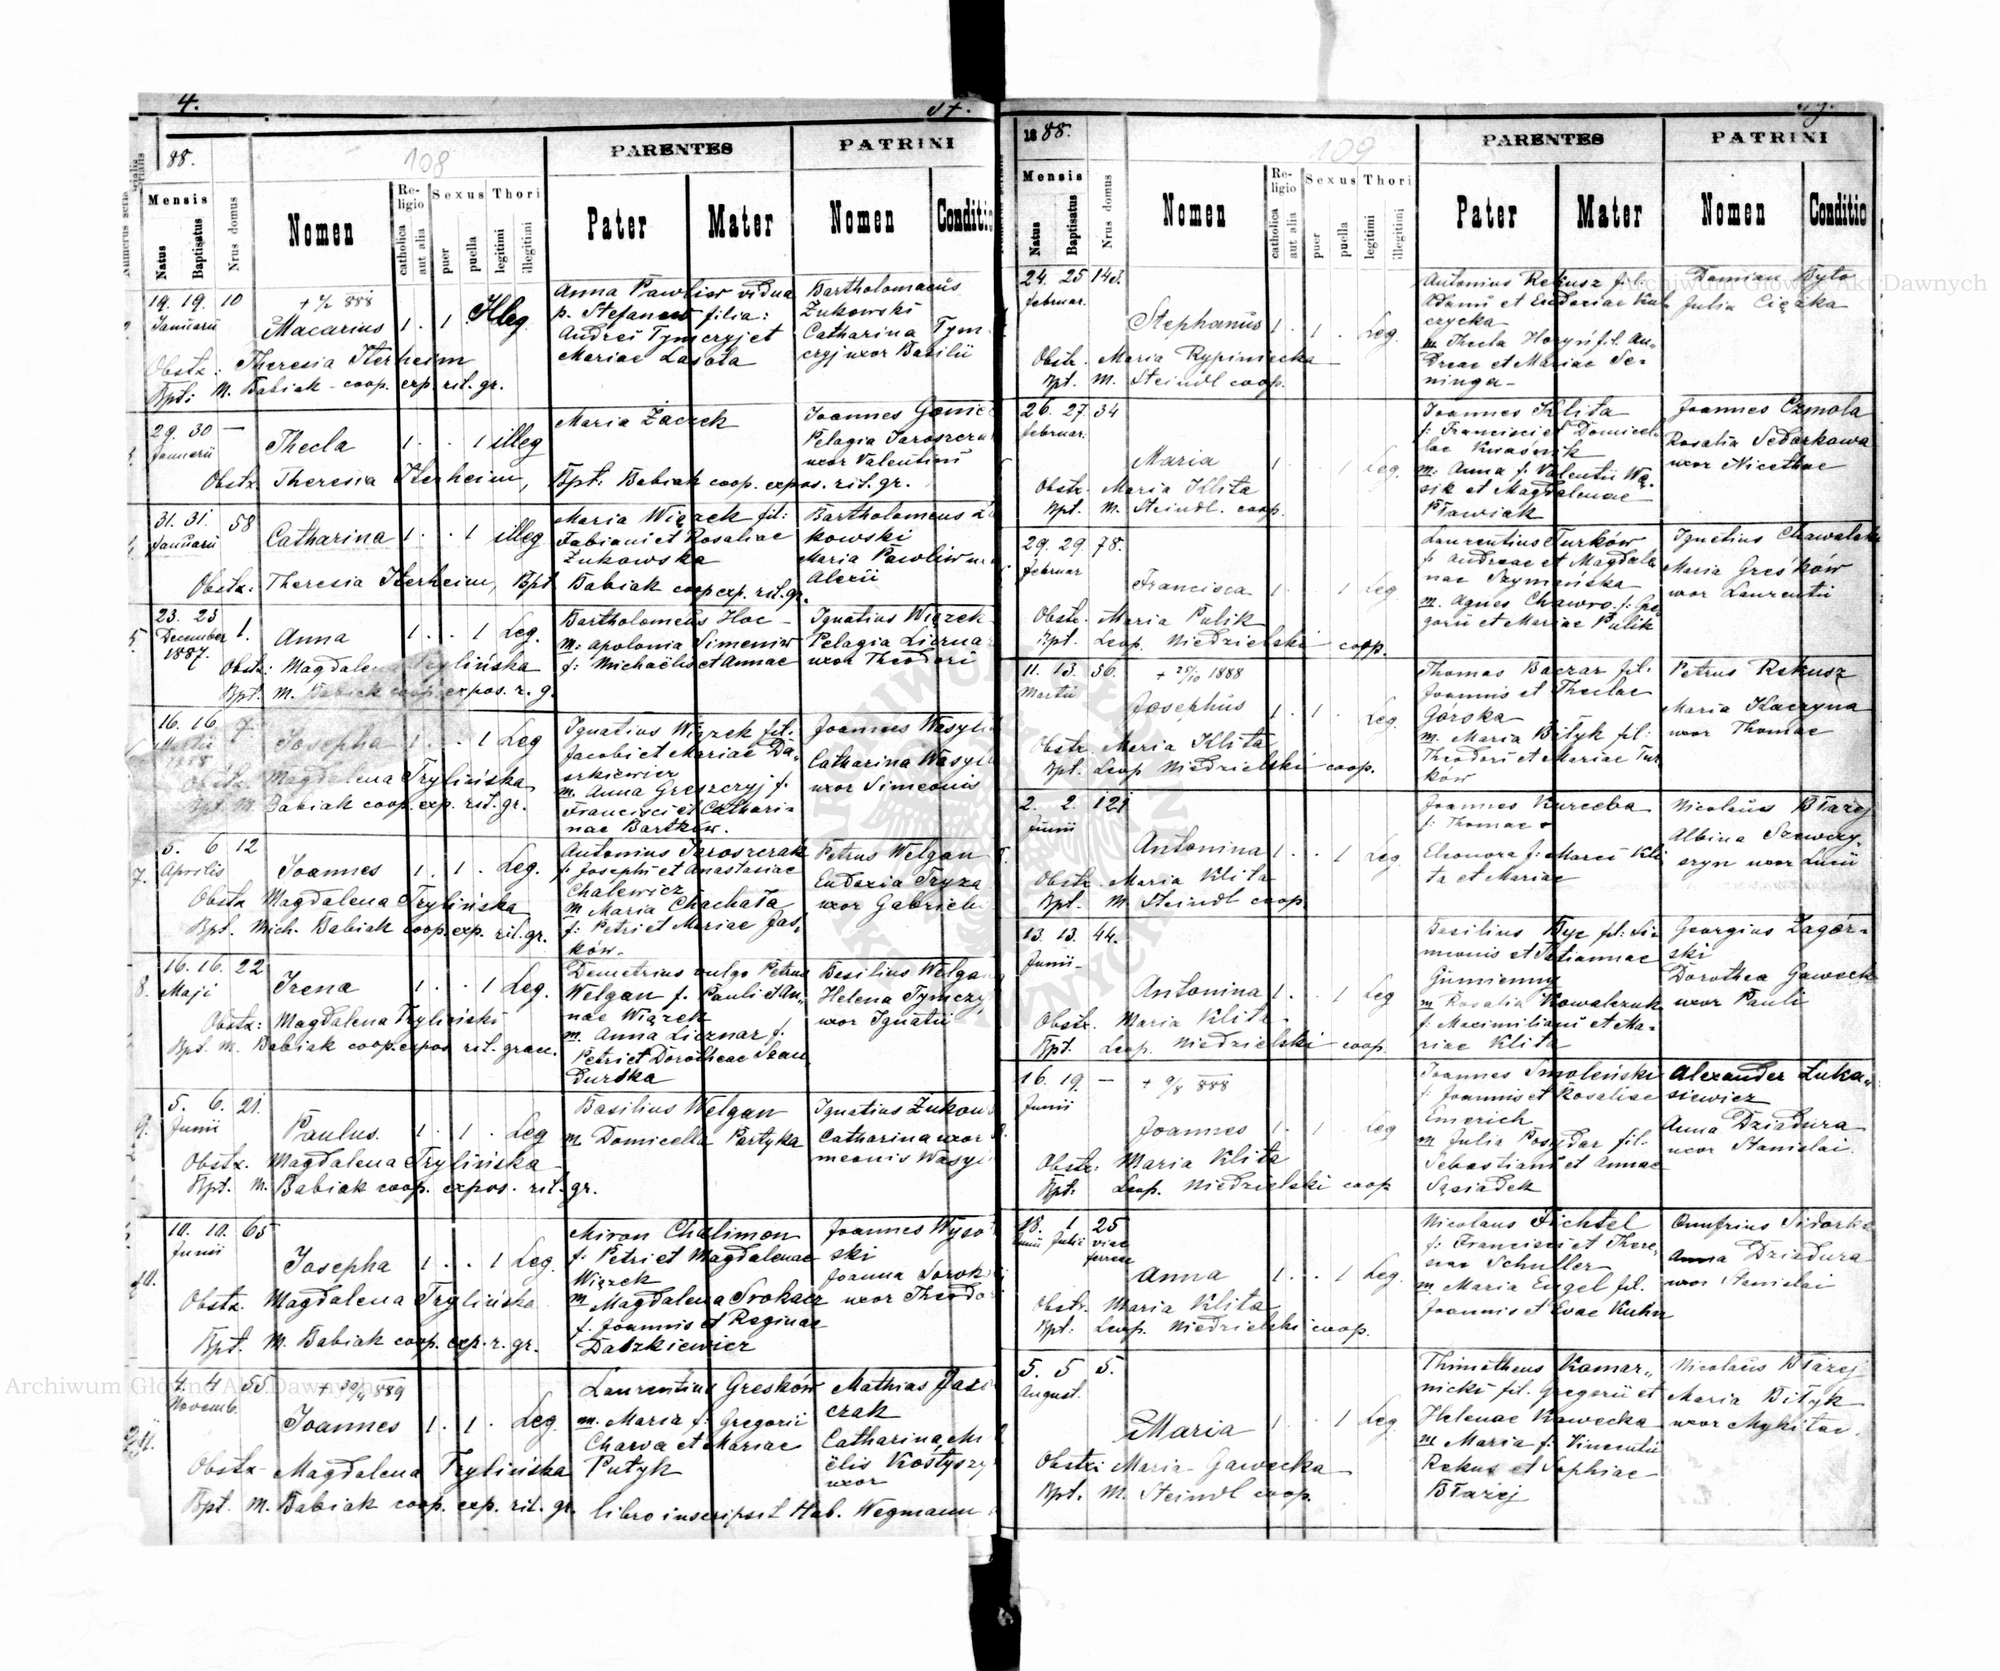 4.
88.
108
PARENTES
PATRINI
Mensis
Natus
Baptisatus
Nrus domus
Nomen
Religio
catholica
aut alia
Sexus
puer
puella
Thori
legitimi
illegitimi
Pater
Mater
Nomen
Conditio
19. 19. 10
Januarii
Macarius 1. 1 Illeg
Obstx. Theresia Iterheim
Bpt: M. Babiak coop. exp rit. gr.
Anna Pawliw vidua
p. Stefanew filia:
Andrei Tymczyj et
Mariae Lasota
Bartholomaeus
Żukowski
Catharina Tym
czyj uxor Basilii
29. 30 —
Januarii
Thecla 1. . 1 illeg
Obstx. Theresia Iterheim, Bpt: Babiak coop. expos. rit. gr.
Maria Żaczek
Joannes
Pelagia
uxor Valentini
31. 31. 58
Januarii
Catharina 1. . 1 illeg
Obstx. Theresia Iterheim, Bpt Babiak coop exp. rit. gr.
Maria Wiązek fil:
Fabiani et Rosaliae
Żukowska
Bartholomeus
kowski
Maria Pawliw
Alexii
5.
23. 23
December 1.
1887.
Anna 1. . 1 Leg.
Obstx: Magdalena Trylińska
Bpt. M. Babiak coop. expos. r. g.
Bartholomeus Hoc
m: Apolonia Simeniw
f: Michaëlis et Annae
Ignatius Wiązek
Pelagia Licznar
uxor Theodori
16. 16. 7
Josepha 1. . 1 Leg
Obstx. Magdalena Trylińska
Bpt M Babiak coop. exp. rit. gr.
Ignatius Wiązek fil.
Jacobi et Mariae Da
szkiewicz
m. Anna Greszczyj f.
Francisci et Cathari-
nae Bartków.
Joannes
Catharina
uxor Simeonis
7.
5. 6 12
Aprilis
Joannes 1. 1. Leg.
Obstx Magdalena Trylińska
Bpt. Mich. Babiak coop. exp. rit. gr.
Antonius Jaroszczak
f. Josephi et Anastasiae
Chalewicz
m Maria Chachała
f: Petri et Mariae Jas,
ków.
Petrus Welgan
Eudoxia Tryza
uxor Gabrielis
8.
16. 16. 22
Maji
Irena 1. . 1 Leg.
Obstx: Magdalena Trylińska
Bpt. M. Babiak coop. expos rit. graec.
Demetrius vulgo Petrus
Welgan f. Pauli et An,,
nae Wiązek
m. Anna Licznar f.
Petri et Dorotheae Szan
durska
Basilius Welgan
Helena Tymczyj
uxor Ignatii
9.
5. 6. 21.
Junii
Paulus. 1. 1. Leg
Obstx. Magdalena Trylińska
Bpt. M. Babiak coop. expos. rit. gr.
Basilius Welgan
m Domicella Partyka
Ignatius
Catharina uxor
meonis
10.
10. 10. 65
Junii
Josepha 1. . 1 Leg.
Obstx. Magdalena Trylińska
Bpt. M. Babiak coop. exp. r. gr.
Miron Chalimon
f. Petri et Magdalenae
Wiązek
m Magdalena Srokacz
f. Joannis et Reginae
Daszkiewicz
Joannes
ski
Joanna
uxor
4. 4 55
Novemb.
Joannes 1. 1. Leg.
Obstx. Magdalena Trylińska
Bpt. M. Babiak coop. exp. rit. gr.
Laurentius Gresków
m. Maria f: Gregorii
Charva et Mariae
Putyk
Mathias
czak
Catharina
ëlis
uxor
libro inscripsit Hab. Wegmann
1888.
109
PARENTES
PATRINI
Mensis
Natus
Baptisatus
Nrus domus
Nomen
Religio
catholica
aut alia
Sexus
puer
puella
Thori
legitimi
illegitimi
Pater
Mater
Nomen
Conditio
24. 25 143.
februar.
Stephanus 1. 1. Leg.
Obstr. Maria Rypiniecka
Bpt. M. Steindl coop.
Antonius Rekusz fil.
Adami et Eudoxiae
czycka
m Thecla Horyń fil. An,,
dreae et Mariae Se-
ninga
Damian Byto
Julia Ciężka
26. 27. 34
februar.
Maria 1. . 1 Leg.
Obstr. Maria Klita
Bpt. M. Steindl. coop.
Joannes Klita
f: Francisci et Domicel-
lae Kwaśnik
m: Anna f. Valentii Wą-
sik et Magdalenae
Pławiak
Joannes Czmola
Rosalia Sedorkowa
uxor Nicethae
29. 29. 78.
februar
Francisca 1. . 1 Leg
Obstr. Maria Pulik
Bpt. Leop. Niedzielski coop.
Laurentius Turków
f. Andreae et Magdale
nae Szymańska
m. Agnes Chawro f: Gre
gorii et Mariae Pulik
Ignatius Chawalski
Maria Gresków
uxor Laurentii
11. 13. 56.
Martii
+ 25/10 1888
Josephus 1. 1. Leg.
Obstr. Maria Klita
Bpt. Leop Niedzielski coop.
Thomas Baczar fil.
Joannis et Theclae
Górska
m. Maria Bityk fil:
Theodori et Mariae Tur
ków
Petrus Rekusz
Maria Kaczyna
uxor Thomae
2. 2. 121
Junii
Antonina 1. . 1 Leg
Obstr. Maria Klita
Bpt. M. Steindl coop.
Joannes Kurceba
f: Thomae
Eleonora f: Marci Kli
ta et Mariae
Nicolaus Błażej
Albina Szewczy-
szyn uxor Lucii
13. 13. 44.
Junii
Antonina 1. . 1 Leg
Obstr. Maria Klita
Bpt. Leop. Niedzielski coop.
Basilius Byc fil: Si-
meonis et Tatiannae
Gumienny
m Rosalia Kowalczuk
f: Maximiliani et Ma-
riae Klita
Georgius Zagór-
ski
Dorothea Gawecka
uxor Pauli
16. 19. —
Junii
+ 9/8 888
Joannes 1. 1. Leg
Obstr: Maria Klita
Bpt: Leop. Niedzielski coop
Joannes Smoleński
f: Joannis et Rosaliae
Emerich
m Julia Posydar fil.
Sebastiani et Annae
Sąsiadek
Alexander Łuka,,
siewicz
Anna Dziadura
uxor Stanislai.
18. 1 25
Junii Julii viae
ferreae
Anna 1. . 1 Leg.
Obstr. Maria Klita
Bpt: Leop. Niedzielski coop.
Nicolaus Fichtel
f: Francisci et There,
siae Schuller
m. Maria Engel fil.
Joannis et Evae Kuhn
Onufrius Sidorko
Anna Dziadura
uxor Stanislai
5. 5 5.
August.
Maria 1. . 1 Leg
Obstr: Maria Gawecka
Bpt. M. Steindl coop.
Thimotheus Komar,,
nicki fil. Gregorii et
Helenae Kawecka
m Maria f: Vincentii
Rekus et Sophiae
Błażej
Nicolaus Błażej
Maria Bityk
uxor Mykitae.
Archiwum Główne Akt Dawnych
Archiwum Główne Akt Dawnych